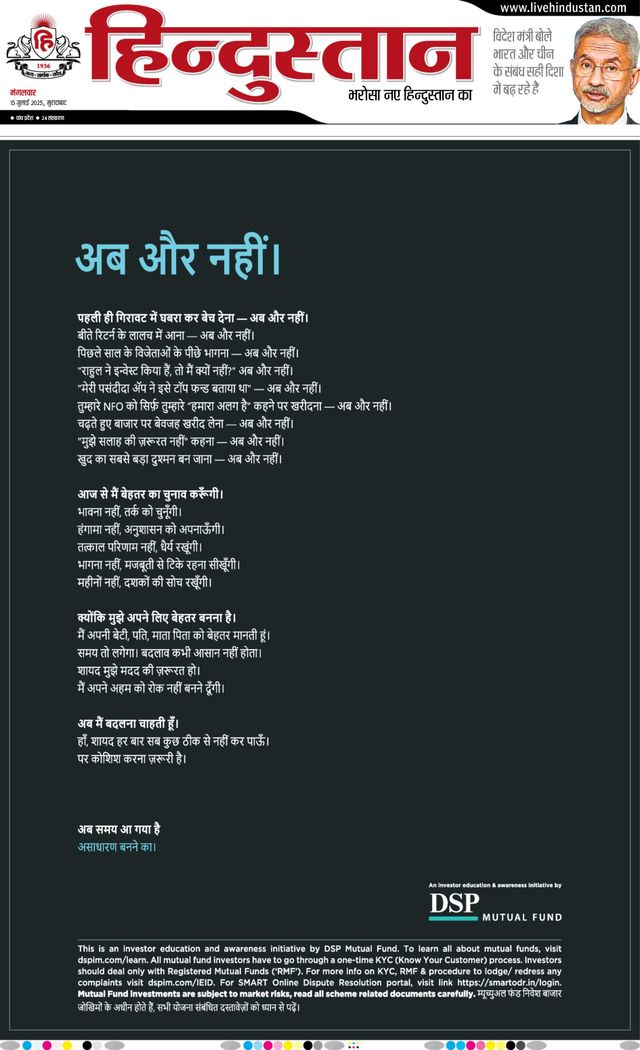 www.livehindustan.com
हि
1936
हिन्दुस्तान
भरोसा नए हिन्दुस्तान का
मंगलवार
15 जुलाई 2025, मुरादाबाद
● पांच प्रदेश ● 24 संस्करण
विदेश मंत्री बोले
भारत और चीन
के संबंध सही दिशा
में बढ़ रहे हैं
अब और नहीं।
पहली ही गिरावट में घबरा कर बेच देना — अब और नहीं।
बीते रिटर्न के लालच में आना — अब और नहीं।
पिछले साल के विजेताओं के पीछे भागना — अब और नहीं।
"राहुल ने इन्वेस्ट किया हैं, तो मैं क्यों नहीं?" अब और नहीं।
"मेरी पसंदीदा ॲप ने इसे टॉप फन्ड बताया था" — अब और नहीं।
तुम्हारे NFO को सिर्फ़ तुम्हारे "हमारा अलग है" कहने पर खरीदना — अब और नहीं।
चढ़ते हुए बाजार पर बेवजह खरीद लेना — अब और नहीं।
"मुझे सलाह की ज़रूरत नहीं" कहना — अब और नहीं।
खुद का सबसे बड़ा दुश्मन बन जाना — अब और नहीं।
आज से मैं बेहतर का चुनाव करूँगी।
भावना नहीं, तर्क को चुनूँगी।
हंगामा नहीं, अनुशासन को अपनाऊँगी।
तत्काल परिणाम नहीं, धैर्य रखूंगी।
भागना नहीं, मजबूती से टिके रहना सीखूँगी।
महीनों नहीं, दशकों की सोच रखूँगी।
क्योंकि मुझे अपने लिए बेहतर बनना है।
मैं अपनी बेटी, पति, माता पिता को बेहतर मानती हूं।
समय तो लगेगा। बदलाव कभी आसान नहीं होता।
शायद मुझे मदद की ज़रूरत हो।
मैं अपने अहम को रोक नहीं बनने दूँगी।
अब मैं बदलना चाहती हूँ।
हाँ, शायद हर बार सब कुछ ठीक से नहीं कर पाऊँ।
पर कोशिश करना ज़रूरी है।
अब समय आ गया है
असाधारण बनने का।
An investor education & awareness initiative by
DSP
MUTUAL FUND
This is an investor education and awareness initiative by DSP Mutual Fund. To learn all about mutual funds, visit
dspim.com/learn. All mutual fund investors have to go through a one-time KYC (Know Your Customer) process. Investors
should deal only with Registered Mutual Funds ('RMF'). For more info on KYC, RMF & procedure to lodge/ redress any
complaints visit dspim.com/IEID. For SMART Online Dispute Resolution portal, visit link https://smartodr.in/login.
Mutual Fund Investments are subject to market risks, read all scheme related documents carefully. म्यूच्युअल फंड निवेश बाजार
जोखिमों के अधीन होते हैं, सभी योजना संबंधित दस्तावेज़ों को ध्यान से पढ़ें।